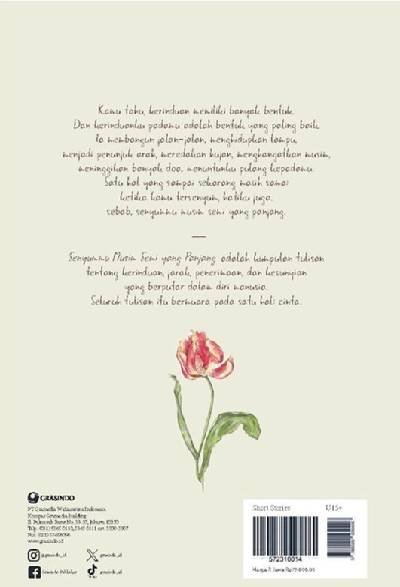 Kamu tahu, kerinduan memiliki banyak bentuk.
Dan kerinduanku padamu adalah bentuk yang paling baik.
Ia membangun jalan-jalan, menghidupkan lampu,
menjadi penunjuk arah, meredakan hujan, menghangatkan musim,
meninggikan banyak doa, menuntunku pulang kepadamu.
Satu hal yang sampai sekarang masih sama:
ketika kamu tersenyum, hatiku juga.
sebab, senyummu musim semi yang panjang.
—
Senyummu Musim Semi yang Panjang adalah kumpulan tulisan
tentang kerinduan, jarak, penerimaan, dan kesunyian
yang berputar dalam diri manusia.
Seluruh tulisan itu bermuara pada satu hal: cinta.
GRASINDO
PT Gramedia Widiasarana Indonesia
Kompas Gramedia Building
www.grasindo.id
@grasindo_id
grasindo_id
Grasindo Publisher
@grasindo_id
Short Stories
U15+
572310014
Harga P. Jawa